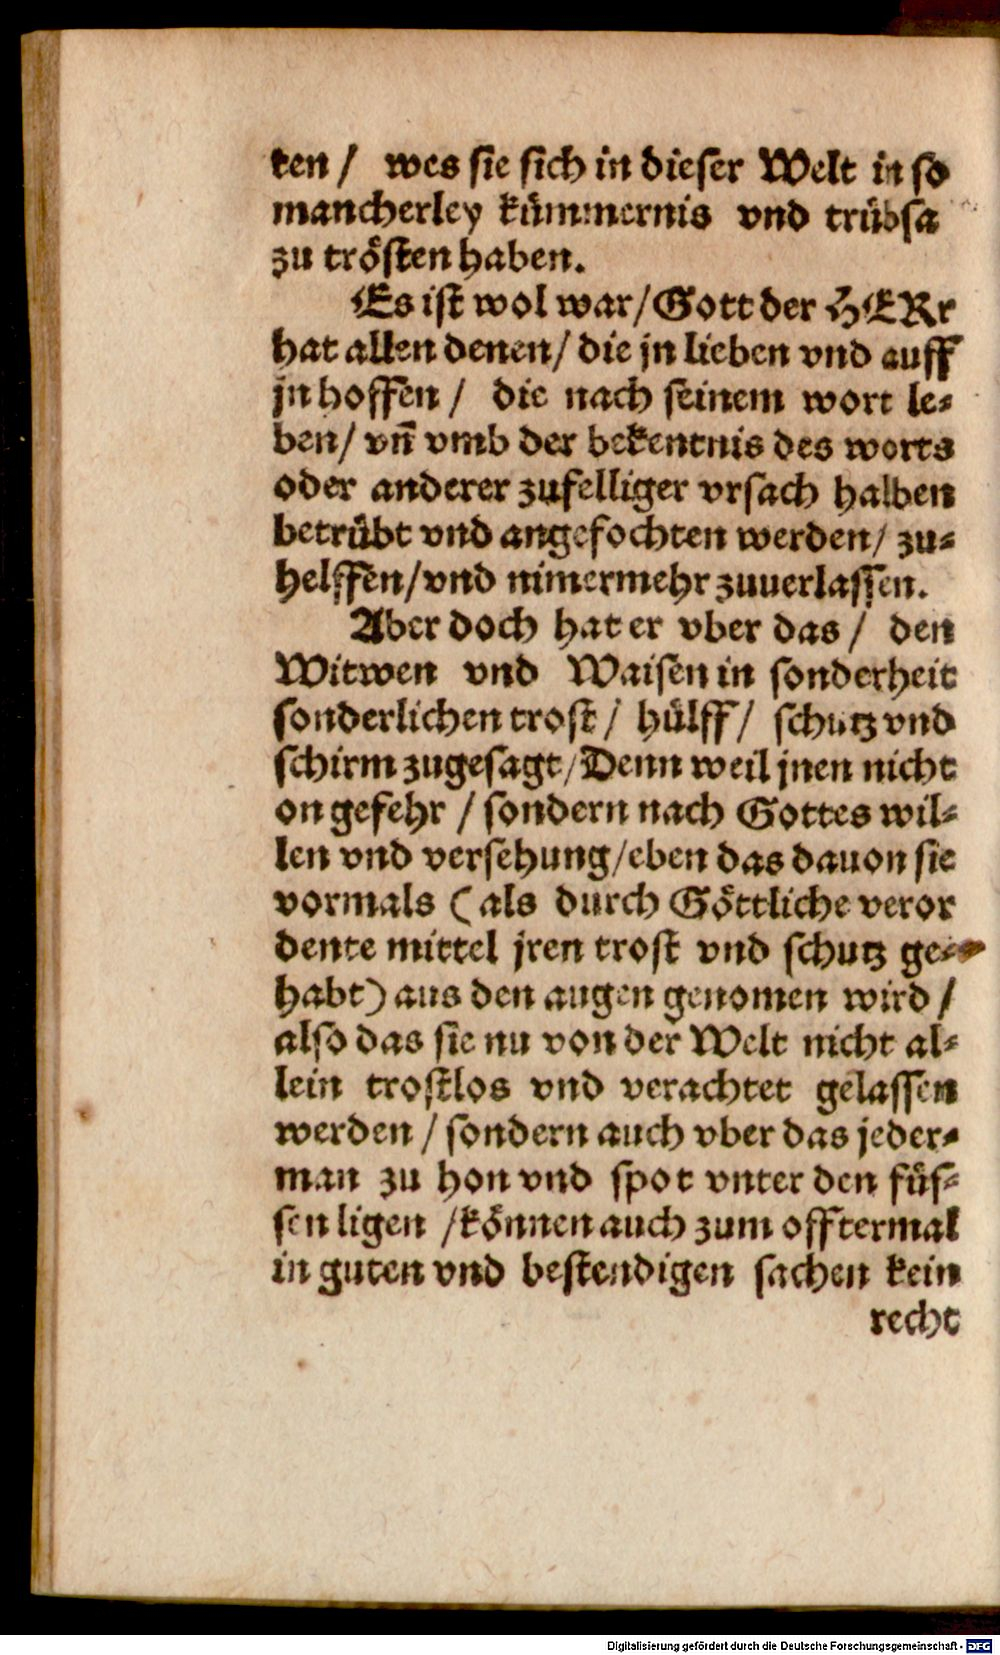 ten / wes sie sich in dieser Welt in so
mancherley kümmernis vnd trübsa
zu trösten haben.
Es ist wol war/ Gott der HERr
hat allen denen/ die jn lieben vnd auff
jn hoffen / die nach seinem wort le⸗
ben/ vn̄ vmb der bekentnis des worts
oder anderer zufelliger vrsach halben
betrübt vnd angefochten werden/ zu⸗
helffen/ vnd nimermehr zuuerlassen.
Aber doch hat er vber das / den
Witwen vnd Waisen in sonderheit
sonderlichen trost / hülff / schutz vnd
schirm zugesagt/ Denn weil jnen nicht
on gefehr / sondern nach Gottes wil⸗
len vnd versehung/ eben das dauon sie
vormals ( als durch Göttliche veror
dente mittel jren trost vnd schutz ge⸗
habt) aus den augen genomen wird /
also das sie nu von der Welt nicht al⸗
lein trostlos vnd verachtet gelassen
werden / sondern auch vber das jeder⸗
man zu hon vnd spot vnter den füs⸗
sen ligen / können auch zum offtermal
in guten vnd bestendigen sachen kein
recht
Digitalisierung gefördert durch die Deutsche Forschungsgemeinschaft - DFG